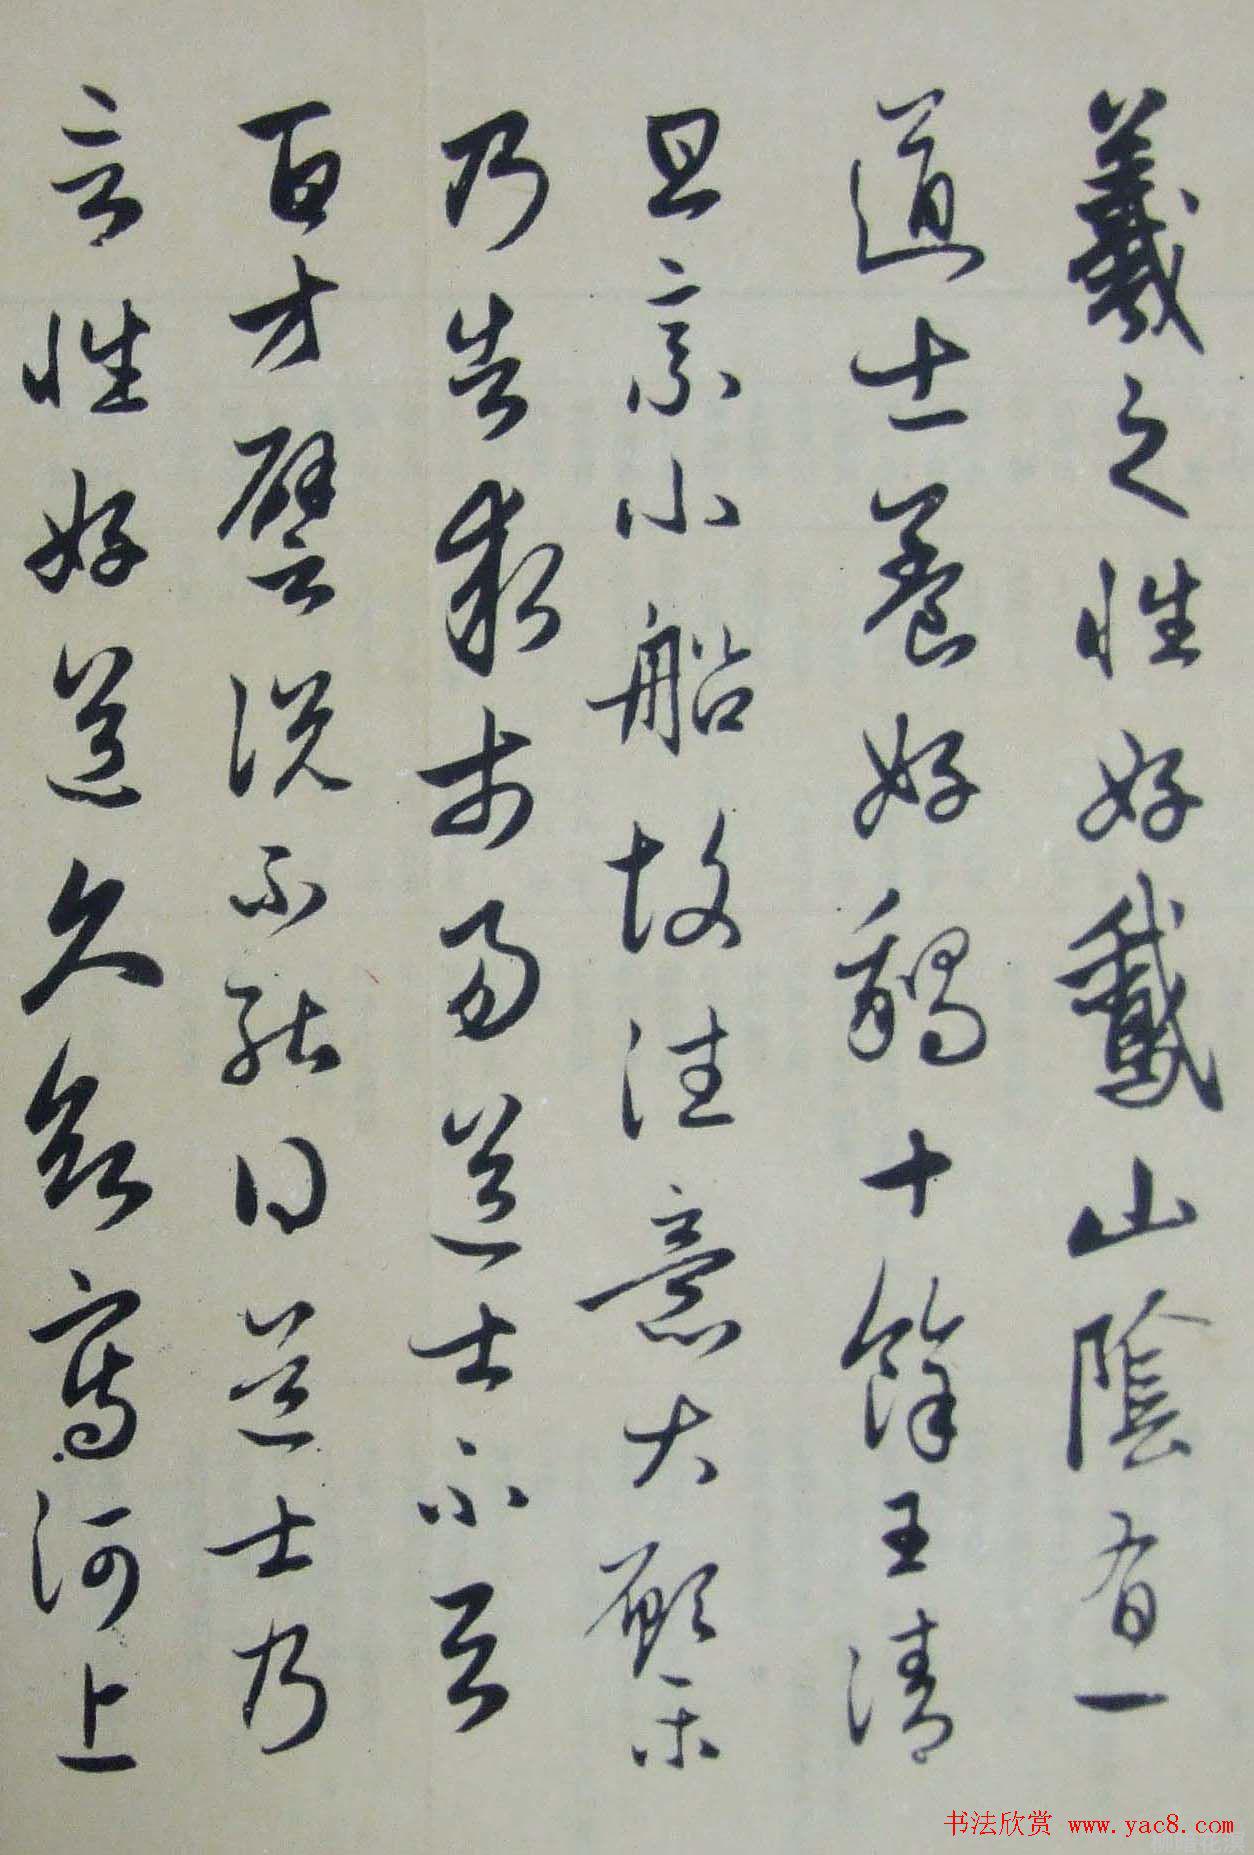 羲之性好鵞山陰有一
道士養好鵝十餘王清
旦乘小船故往意大願樂
乃告求市易道士不與
百方譬說不能得道士乃
言性好道久欲寫河上
书法欣赏 www.yac8.com